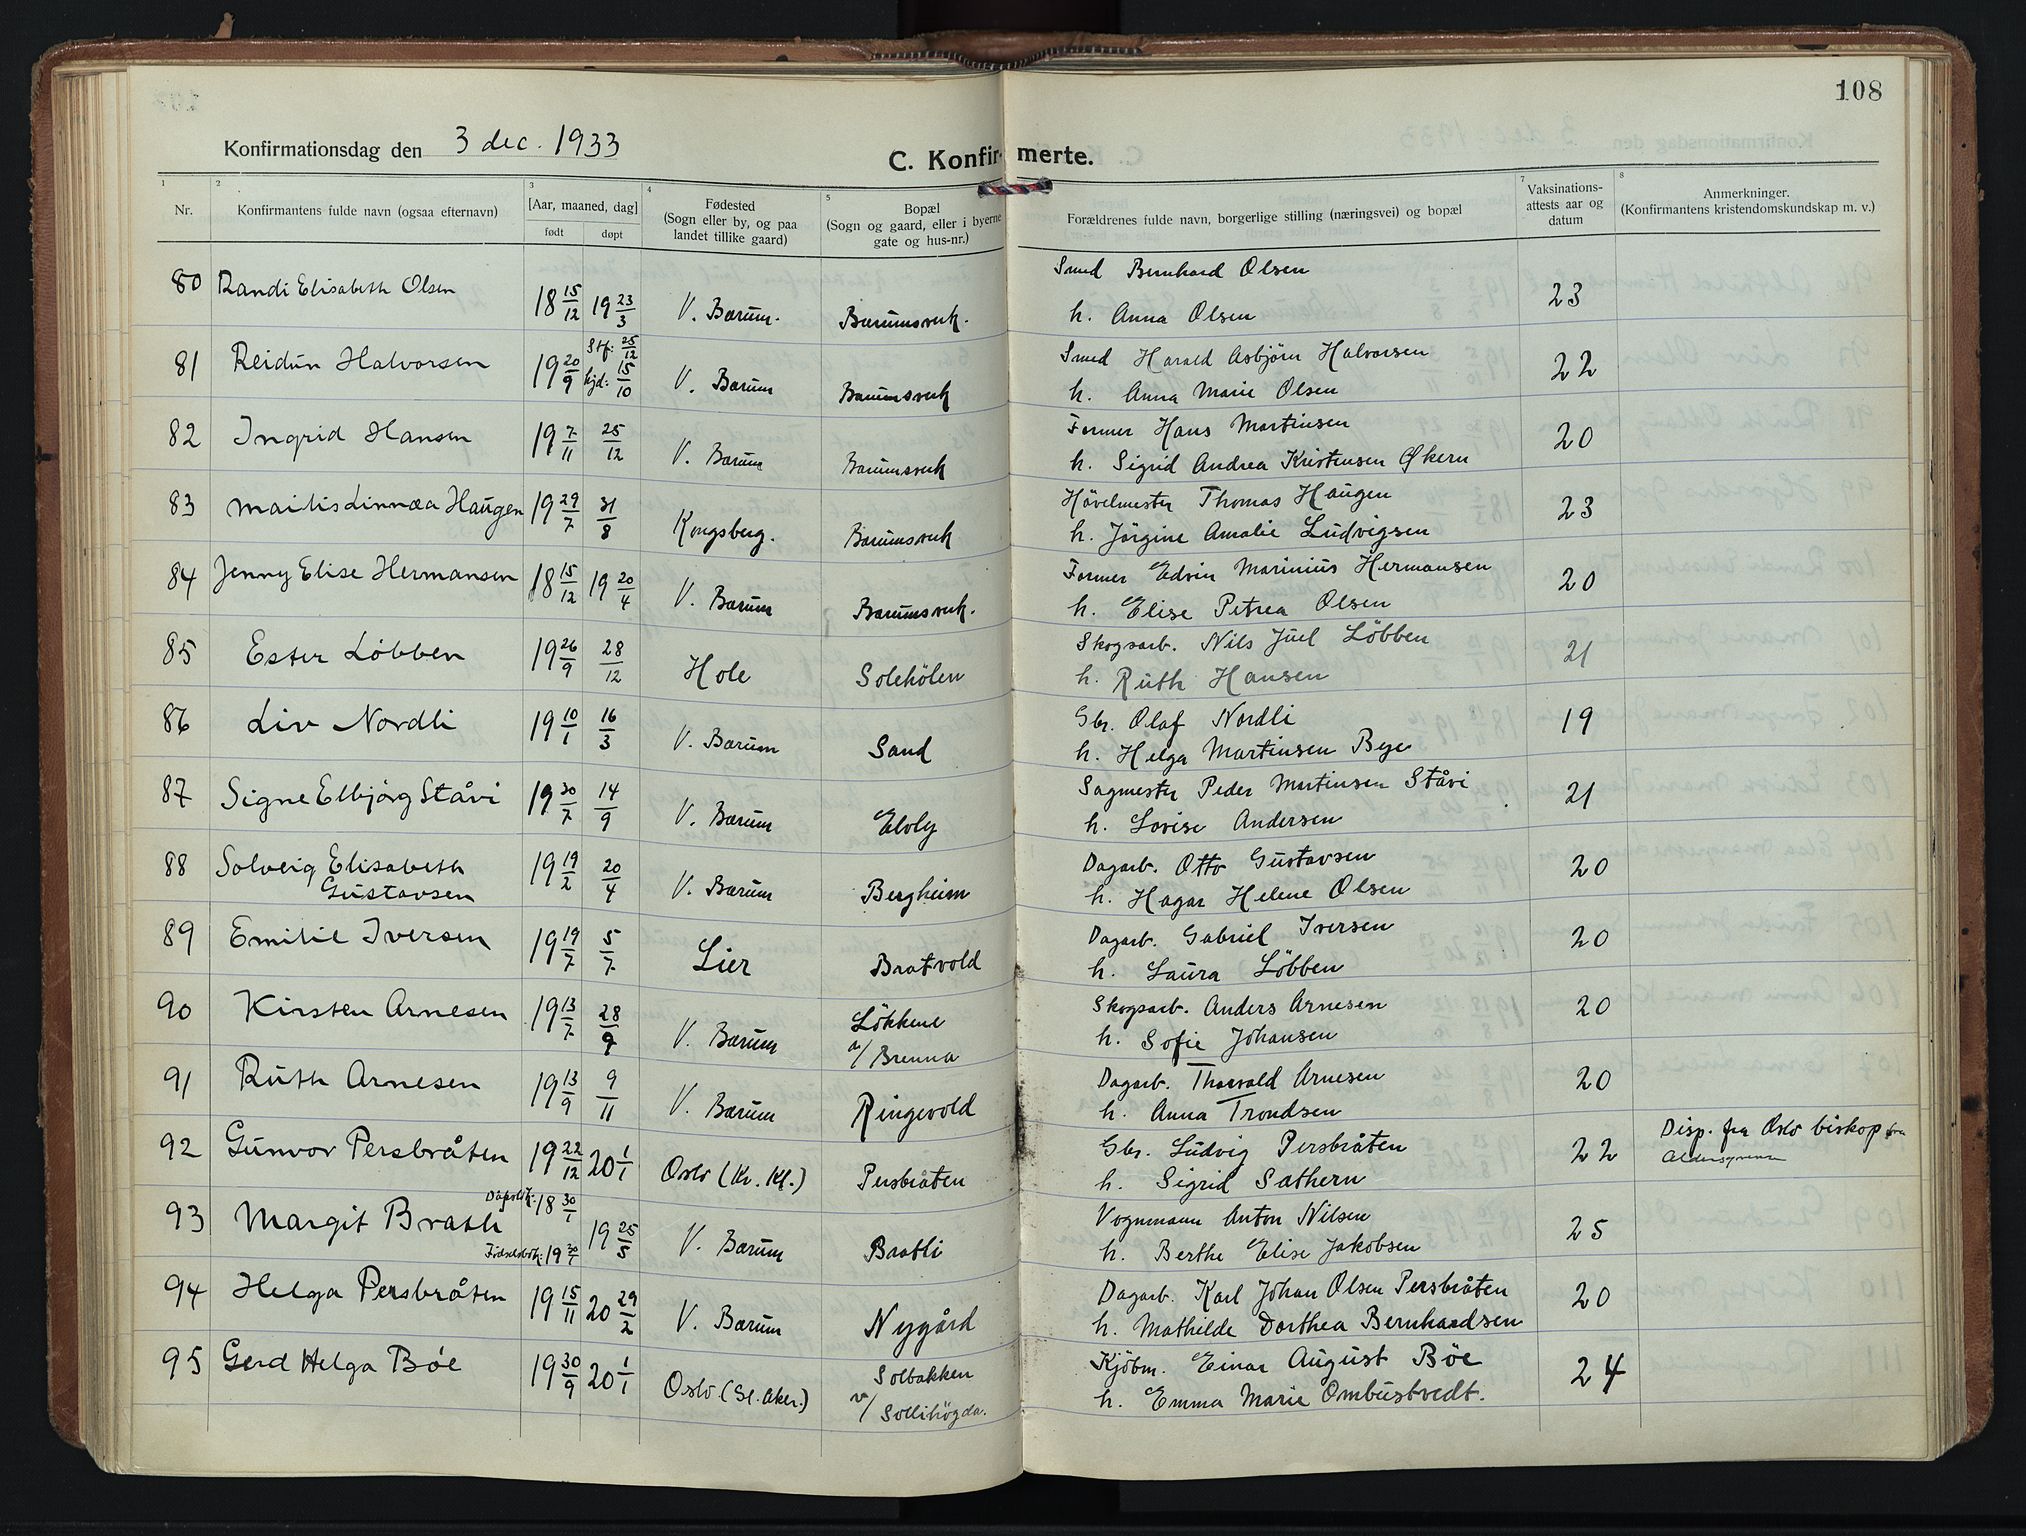 108
Konfirmationsdag den 3 dec. 1933
C. Konfirmerte.
1 2 3 4 5 7 8
Nr.
Konfirmantens fulde navn (ogsaa efternavn)
[Aar, maaned, dag]
født døpt
Fødested
(Sogn eller by, og paa
landet tillike gaard)
Bopæl
(Sogn og gaard, eller i byerne
gate og hus-nr.)
Forældrenes fulde navn, borgerlige stilling (næringsvei) og bopæl
Vaksinations-
attests aar og
datum
Anmerkninger.
(Konfirmantens kristendomskundskap m. v.)
80 Randi Elisabeth Olsen 18 15/12 19 23/3 V. Bærum. Bærumsverk. Smed Bernhard Olsen 23
h. Anna Olsen
81 Reidun Halvorsen 19 20/9 Stf: 25/12 hjd: 15/10 V. Bærum Bærumsverk Smed Harald Asbjörn Halvorsen 22
h. Anna Marie Olsen
82 Ingrid Hansen 19 7/11 25/12 V. Bærum Bærumsverk Former Hans Martinsen 20
h. Sigrid Andrea Kristensen Økern
83 Mailis Linnæa Haugen 19 29/7 31/8 Kongsberg. Bærumsverk Hövelmester Thomas Haugen 23
h. Jörgine Amalie Ludvigsen
84 Jenny Elise Hermansen 18 15/12 19 20/4 V. Bærum Bærumsverk. Former Edvin Marinius Hermansen 20
h. Elise Petrea Olsen
85 Ester Löbben 19 26/9 28/12 Hole Solehölen Skogsarb. Nils Juel Löbben 21
h. Ruth Hansen
86 Liv Nordli 19 10/1 16/3 V. Bærum Sand Gbr. Olaf Nordli 19
h. Helga Martinsen Bye
87 Signe Elbjörg Ståvi 19 30/7 14/9 V. Bærum Elvly Sagmester Peder Martinsen Ståvi 21
h. Lovise Andersen
88 Solveig Elisabeth
Gustavsen 19 19/2 20/4 V. Bærum Bergheim Dagarb. Otto Gustavsen 20
h. Hagar Helene Olsen
89 Emilie Iversen 19 19/7 5/7 Lier Bratvold Dagarb. Gabriel Iversen 20
h. Laura Löbben
90 Kirsten Arnesen 19 13/7 28/9 V. Bærum Lökkene Skogsarb. Anders Arnesen 20
a/ Brenna h. Sofie Johansen
91 Ruth Arnesen 19 13/9 9/11 V. Bærum Ringevold Dagarb. Thorvald Arnesen 20
h. Anna Trondsen
92 Gunvor Persbråten 19 22/12 20 1/1 Oslo (Kv. Kl.) Persbråten Gbr. Ludvig Persbråten 22 Disp. fra Oslo biskop fra
Aldersgrensen
h. Sigrid Sæthern
93 Margit Bratli Dåpsbk: 18 30/1 Fødselsbok: 19 30/1 19 25/5 V. Bærum Bratli Vognmann Anton Nilsen 25
h. Berthe Elise Jakobsen
94 Helga Persbråten 19 15/11 20 29/2 V. Bærum Nygård Dagarb. Karl Johan Olsen Persbråten 20
h. Mathilde Dorthea Bernhardsen
95 Gerd Helga Böe 19 30/9 20 1/1 Oslo (Sl. Aker.) Solbakken Kjöbm. Einar August Böe 24
v/ Sollihögda. h. Emma Marie Ombustvedt.